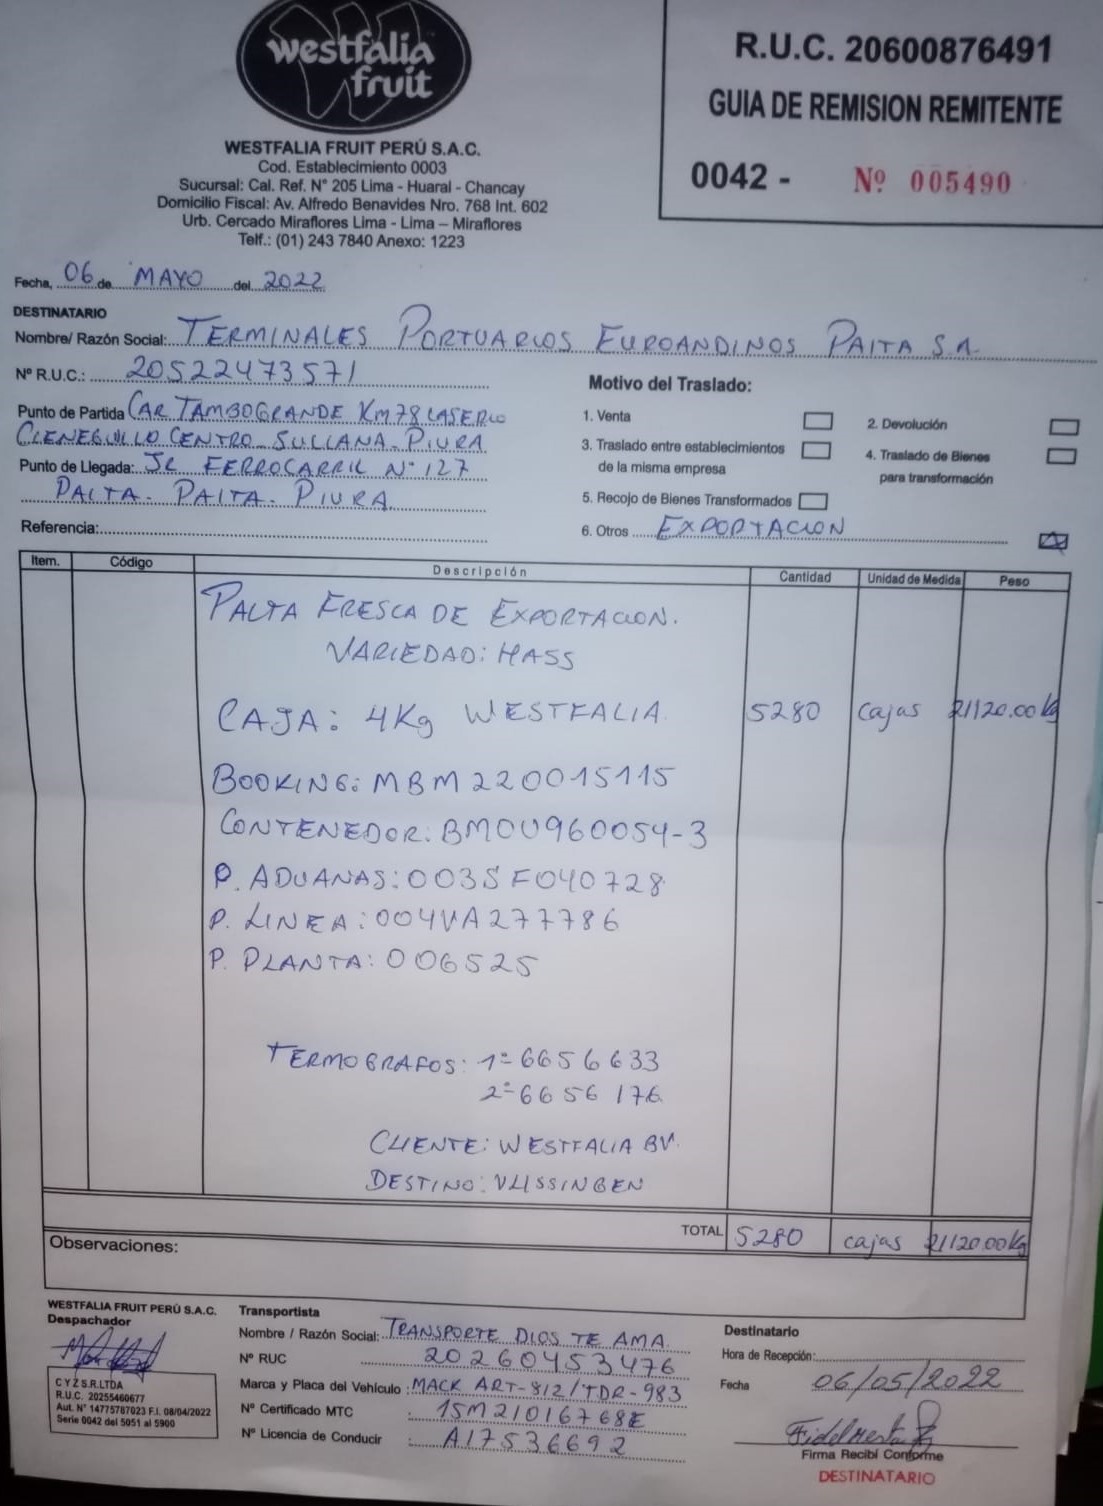 westfalia
fruit
WESTFALIA FRUIT PERÚ S.A.C.
Cod. Establecimiento 0003
Sucursal: Cal. Ref. N° 205 Lima - Huaral - Chancay
Domicilio Fiscal: Av. Alfredo Benavides Nro. 768 Int. 602
Urb. Cercado Miraflores Lima - Lima – Miraflores
Telf.: (01) 243 7840 Anexo: 1223
R.U.C. 20600876491
GUIA DE REMISION REMITENTE
0042 - Nº 005490
Fecha, 06 de MAYO del 2022
DESTINATARIO
Nombre/ Razón Social: TERMINALES PORTUARIOS EUROANDINOS PAITA S.A.
Nº R.U.C.: 20522473571
Punto de Partida CAR TAMBOGRANDE KM78 CASERIO
CIENEGUILLO CENTRO - SULLANA - PIURA
Punto de Llegada: JR FERROCARRIL Nº 127
PAITA - PAITA - PIURA
Referencia:
Motivo del Traslado:
1. Venta
2. Devolución
3. Traslado entre establecimientos
de la misma empresa
4. Traslado de Bienes
para transformación
5. Recojo de Bienes Transformados
6. Otros EXPORTACION
Item. Código Descripción Cantidad Unidad de Medida Peso
PALTA FRESCA DE EXPORTACION.
VARIEDAD: HASS
CAJA: 4Kg WESTFALIA 5280 cajas 21120.00 kg
BOOKING: MBM220015115
CONTENEDOR: BMOU960054-3
P. ADUANAS: 003SF040728
P. LINEA: 004VA277786
P. PLANTA: 006525
TERMOGRAFOS: 1º 6656633
2º 6656176
CLIENTE: WESTFALIA BV.
DESTINO: VLISSINGEN
TOTAL 5280 cajas 21120.00 kg
Observaciones:
WESTFALIA FRUIT PERÚ S.A.C.
Despachador
C Y Z S.R.LTDA
R.U.C. 20255460677
Aut. N° 14775787023 F.I. 08/04/2022
Serie 0042 del 5051 al 5900
Transportista
Nombre / Razón Social: TRANSPORTE DIOS TE AMA
Nº RUC 20260453476
Marca y Placa del Vehículo: MACK ART-812/TDR-983
Nº Certificado MTC : 15M21016768E
Nº Licencia de Conducir : A17536692
Destinatario
Hora de Recepción:
Fecha 06/05/2022
Firma Recibí Conforme
DESTINATARIO